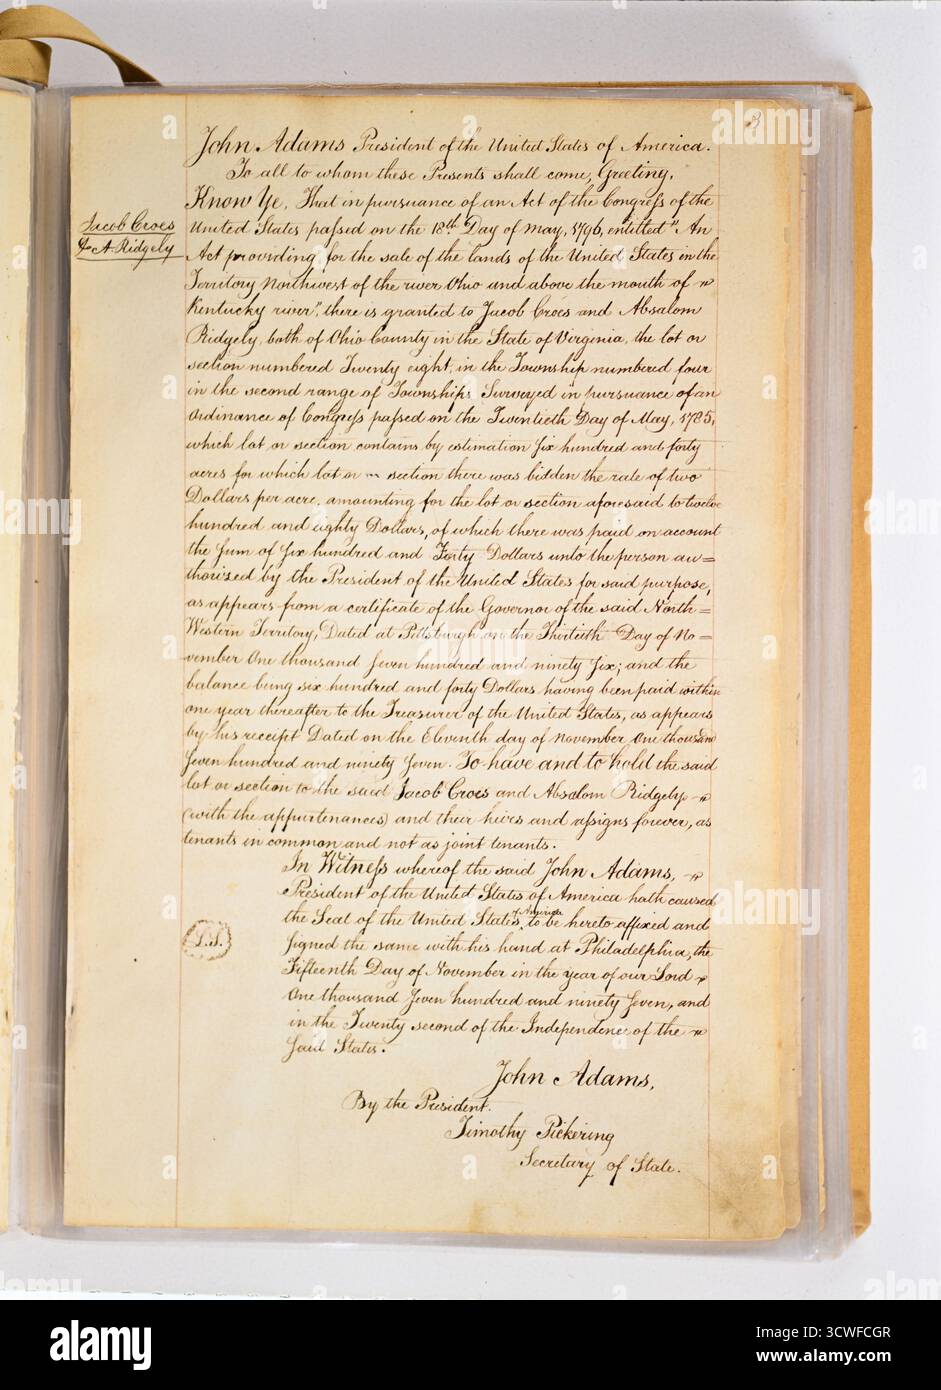 3
John Adams President of the United States of America.
To all to whom these Presents shall come, Greeting,
Know Ye, That in pursuance of an Act of the Congress of the
Jacob Croes
& A Ridgely
United States passed on the 18th Day of May, 1796, entitled "An
Act providing for the sale of the lands of the United States in the
Territory Northwest of the river Ohio and above the mouth of
Kentucky river", there is granted to Jacob Croes and Absalom
Ridgely, both of Ohio County in the State of Virginia, the lot or
section numbered Twenty eight, in the Township numbered four
in the second range of Townships Surveyed in pursuance of an
Ordinance of Congress passed on the Twentieth Day of May, 1785,
which lot or section contains by estimation Six hundred and forty
acres for which lot or section there was bidden the rate of two
Dollars per acre, amounting for the lot or section aforesaid to twelve
hundred and eighty Dollars, of which there was paid on account
the Sum of Six hundred and Forty Dollars unto the person au=
thorized by the President of the United States for said purpose,
as appears from a certificate of the Governor of the said North=
Western Territory, Dated at Pittsburgh on the Thirtieth Day of No=
vember One thousand Seven hundred and ninety Six; and the
balance being six hundred and forty Dollars having been paid within
one year thereafter to the Treasurer of the United States, as appears
by his receipt Dated on the Eleventh day of November One thousand
Seven hundred and ninety Seven. To have and to hold the said
lot or section to the said Jacob Croes and Absalom Ridgely
(with the appurtenances) and their heirs and assigns forever, as
tenants in common and not as joint tenants.
In Witness whereof the said John Adams,
President of the United States of America hath caused
the Seal of the United States of America to be hereto affixed and
L.S.
Signed the same with his hand at Philadelphia, the
Fifteenth Day of November in the year of our Lord
One thousand Seven hundred and ninety Seven, and
in the Twenty second of the Independence of the
Said States.
John Adams,
By the President.
Timothy Pickering
Secretary of State.
alamy
Image ID: 3CWFCGR
www.alamy.com